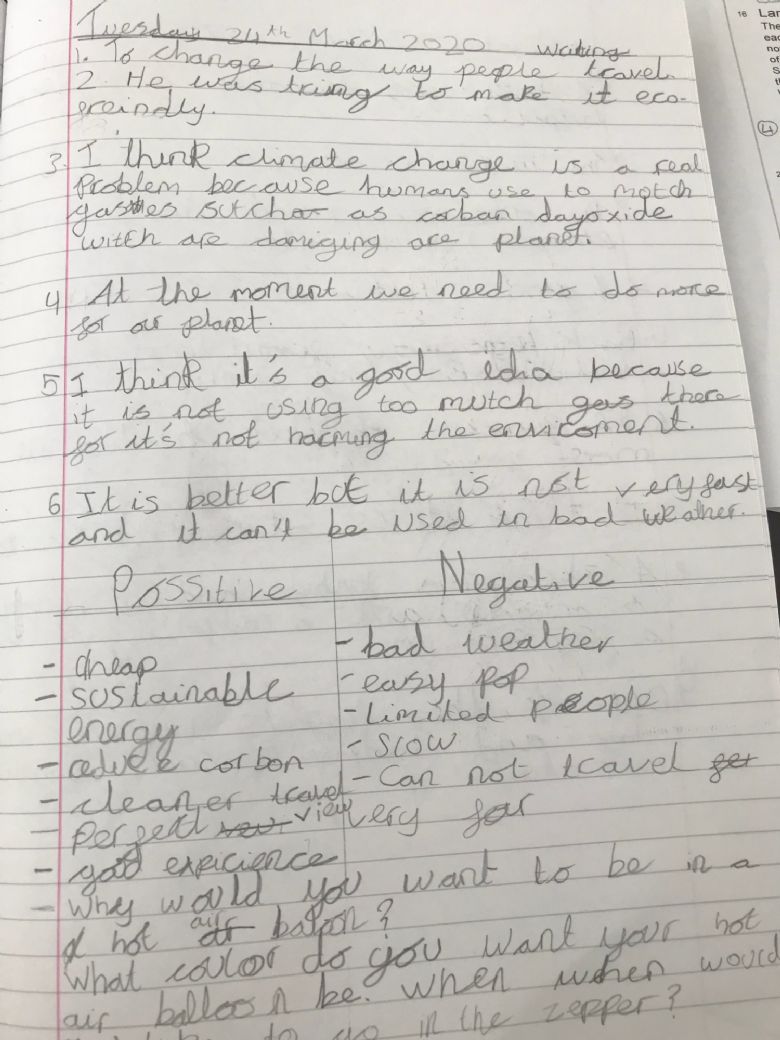 Tuesday 24th March 2020 writing
1. To change the way people travel.
2. He was tring to make it eco-
freindly.
3. I think climate change is a real
Problem because humans use to mutch
gasses sutch as carban dayoxide
witch are damiging are planet.
4 At the moment we need to do more
for our planet.
5 I think it's a good idia because
it is not using too mutch gas there
for it's not harming the enviroment.
6 It is better but it is not very fast
and it can't be used in bad weather.
Possitive
Negative
- cheap
- sustainable
energy
- reduce carbon
- cleaner travel
- Perfect view
- good expicience
- bad weather
- easy pop
- Limited people
- Slow
- Can not travel
very far
- Why would you want to be in a
hot air baloon?
What coulor do you want your hot
air balloon be. When when would
to go in the zepper?
16 Lar
The
ea
no
of
S
4